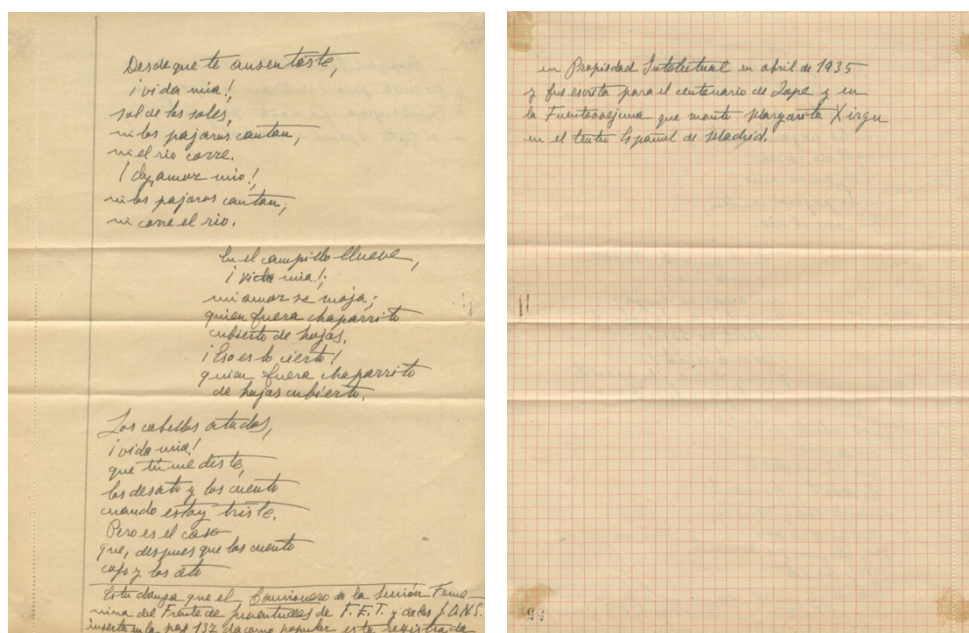 Desde que te ausentaste,
¡vida mia!,
sol de los soles,
ni los pajaros cantan,
ni el rio corre.
¡Ay, amor mio!
ni los pajaros cantan,
ni corre el rio.
En el campillo llueve,
¡vida mia!;
mi amor se moja;
quien fuera chaparrito
cubierto de hojas.
¡Eso es lo cierto!
quien fuera chaparrito
de hojas cubierto.
Los cabellos atados,
¡vida mia!
que tú me diste,
los desato y los cuento
cuando estoy triste.
Pero es el caso
que, despues que los cuento
cojo y los ato
Esta danza que el Cancionero de la Sección Feme-
nina del Frente de juventudes de F.E.T. y de las J.O.N.S.
inserta en la pag 137 como popular esta registrada
en Propiedad Intelectual en abril de 1935
y fue escrita para el centenario de Lope y en
la Fuenteovejuna que montó Margarita Xirgu
en el teatro Español de Madrid.